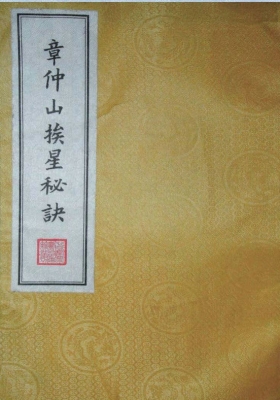 章仲山挨星秘訣